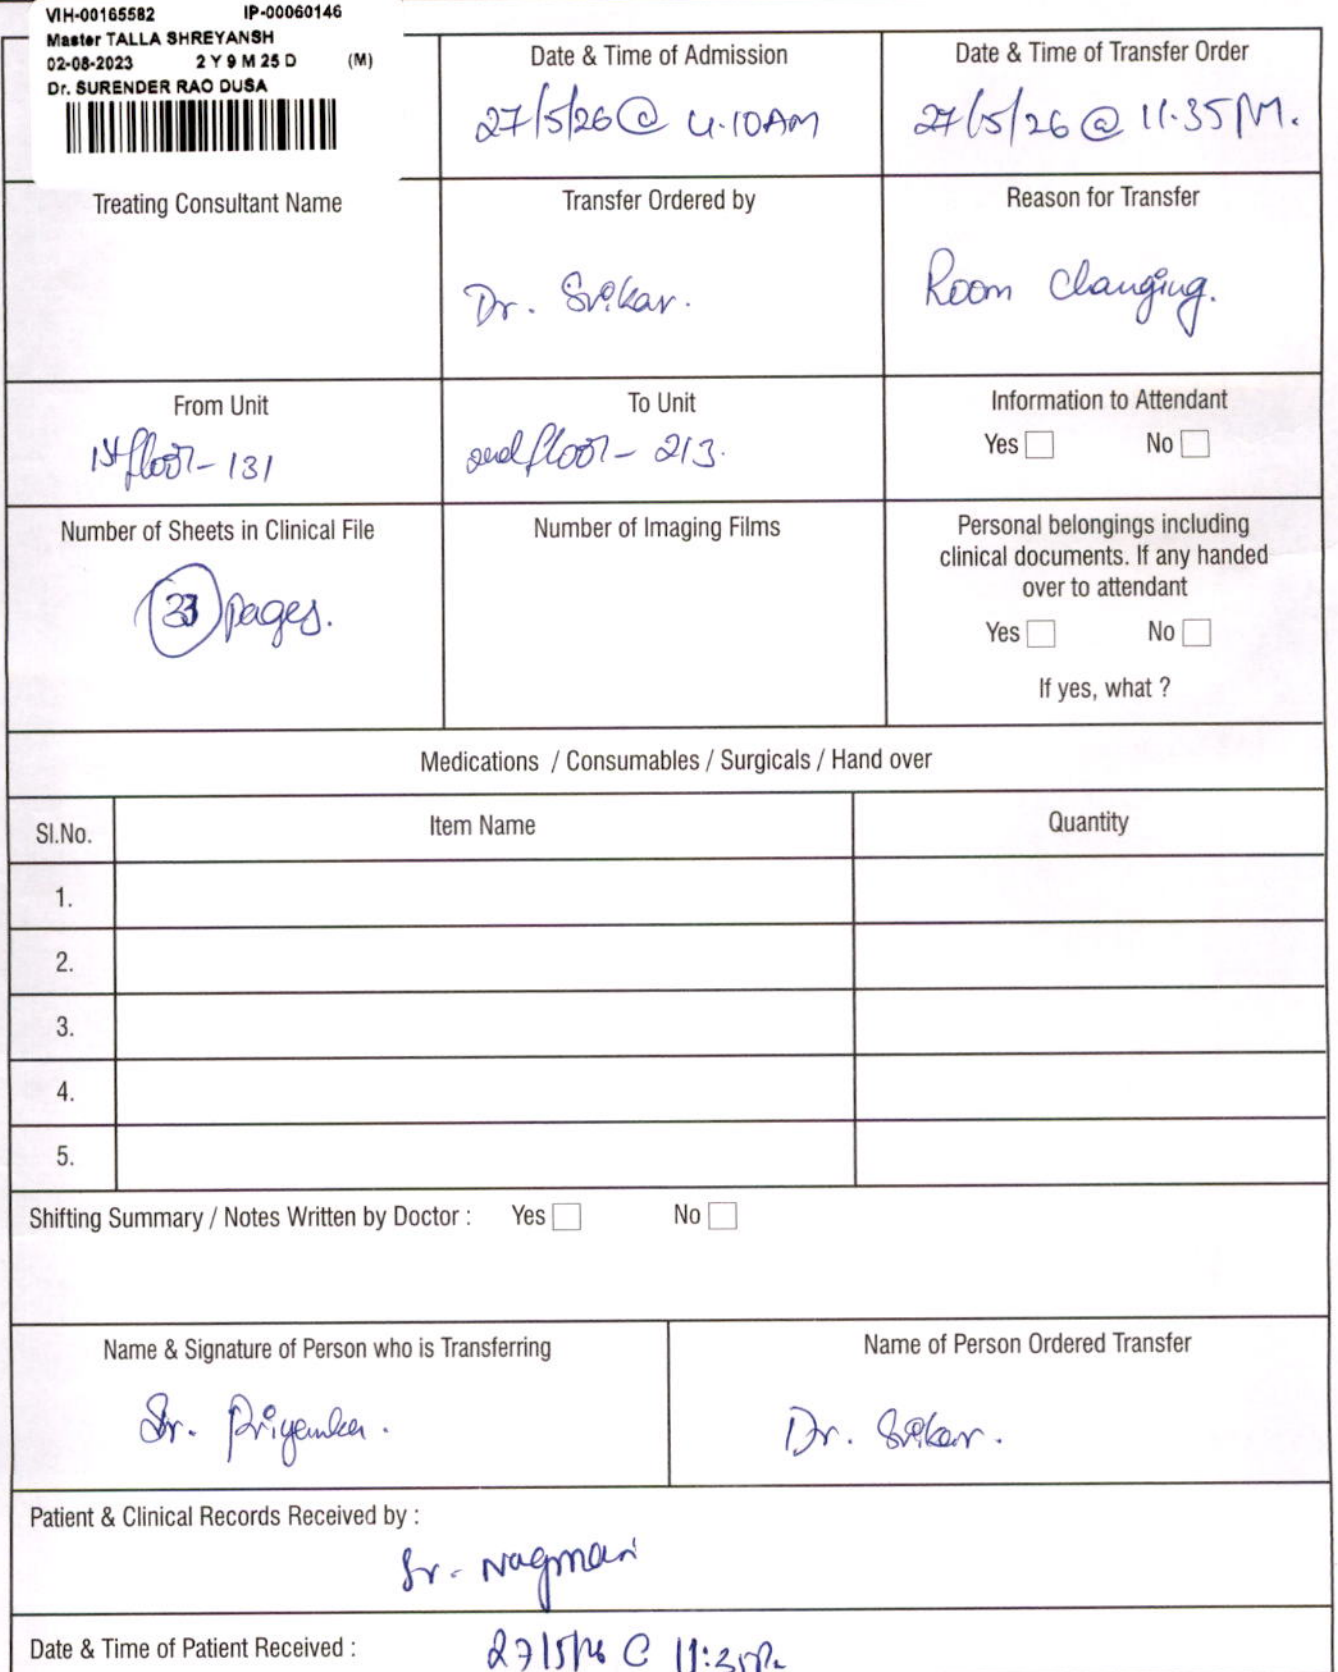 VIH-00165582 IP-00060146
Master TALLA SHREYANSH
02-08-2023 2 Y 9 M 25 D (M)
Dr. SURENDER RAO DUSA
Date & Time of Admission
27/5/26 @ 4.10AM
Date & Time of Transfer Order
27/5/26 @ 11.35PM.
Treating Consultant Name
Transfer Ordered by
Dr. Srikar.
Reason for Transfer
Room Changing.
From Unit
1st floor - 131
To Unit
2nd floor - 213.
Information to Attendant
Yes No
Number of Sheets in Clinical File
33 pages.
Number of Imaging Films
Personal belongings including
clinical documents. If any handed
over to attendant
Yes No
If yes, what ?
Medications / Consumables / Surgicals / Hand over
Sl.No. Item Name Quantity
1.
2.
3.
4.
5.
Shifting Summary / Notes Written by Doctor : Yes No
Name & Signature of Person who is Transferring
Sr. Priyanka.
Name of Person Ordered Transfer
Dr. Srikar.
Patient & Clinical Records Received by :
Sr. Nagmani
Date & Time of Patient Received :
27/5/26